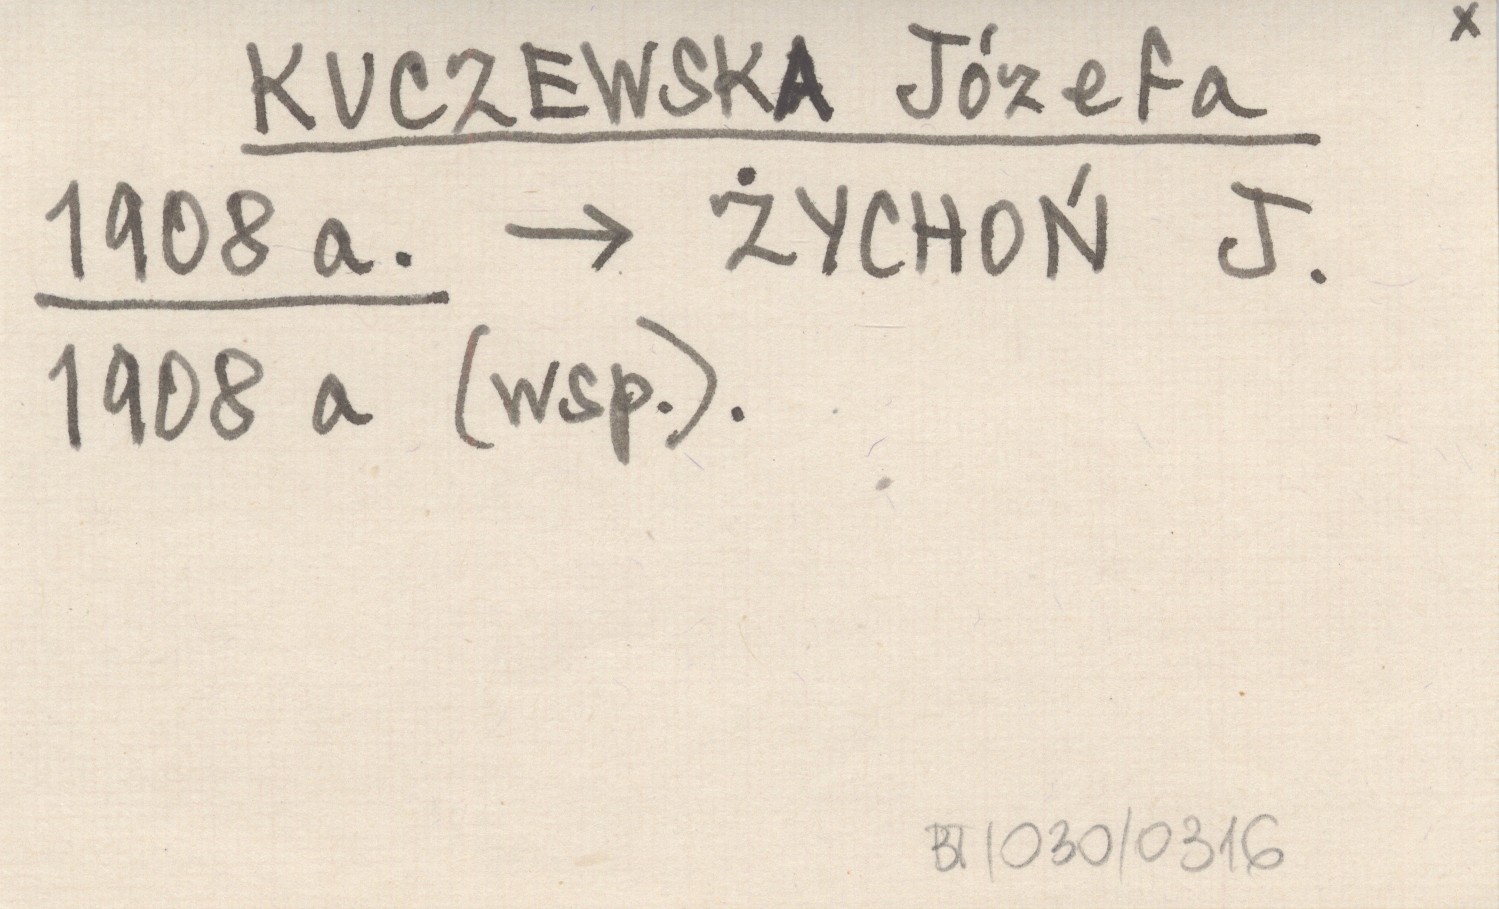 x
KUCZEWSKA Józefa
1908 a. → ŻYCHOŃ J.
1908 a (wsp.).
BT/030/0316